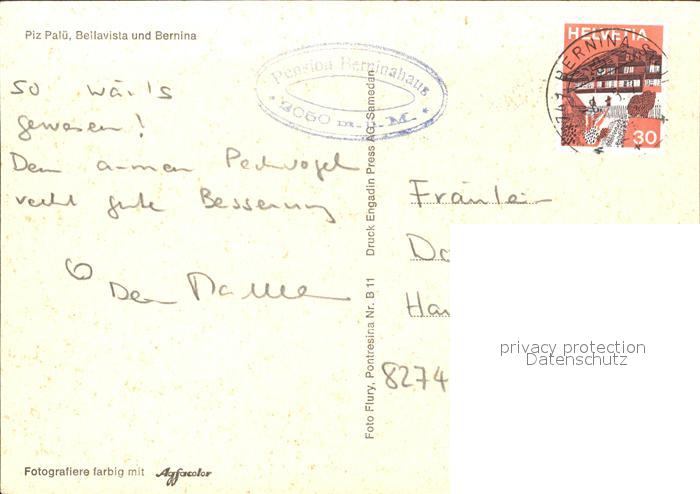 Piz Palü, Bellavista und Bernina
so wär's
gewesen!
Dem armen Pechvogel
recht gute Besserung
Pension Berninahaus
2060 m.ü.M.
HELVETIA
30
BERNINA
Foto Flury, Pontresina Nr. B 11 Druck Engadin Press AG, Samedan
Fräulein
Do
Hau
8274
privacy protection
Datenschutz
Fotografiere farbig mit Agfacolor